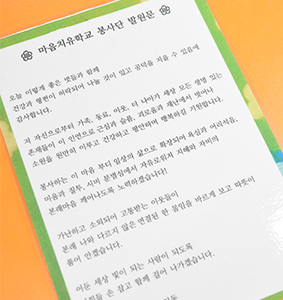 마음치유학교 봉사단 발원문
오늘 이렇게 좋은 벗들과 함께
건강과 형편이 허락되어 나눌 것이 있고 공덕을 지을 수 있음에
감사합니다.
저 자신으로부터 가족, 동료, 이웃, 더 나아가 세상 모든 생명 있는
존재들이 이 인연으로 근심과 슬픔, 괴로움과 재난에서 벗어나
소원을 원만히 이루고 건강하고 평안하며 행복하길 기원합니다.
봉사하는 이 마음 부터 일상의 삶으로 확장되어 욕심과 어리석음,
미움과 질투, 시비 분별심에서 자유로워져 지혜와 자비의
본래마음 깨어나도록 노력하겠습니다!
가난하고 소외되어 고통받는 이웃들이
본래 나와 다르지 않은 연결된 한 몸임을 바르게 보고 따뜻이
품어 안겠습니다.
어두운 세상 빛이 되는 사람이 되도록
손 잡고 함께 걸어 나가겠습니다.